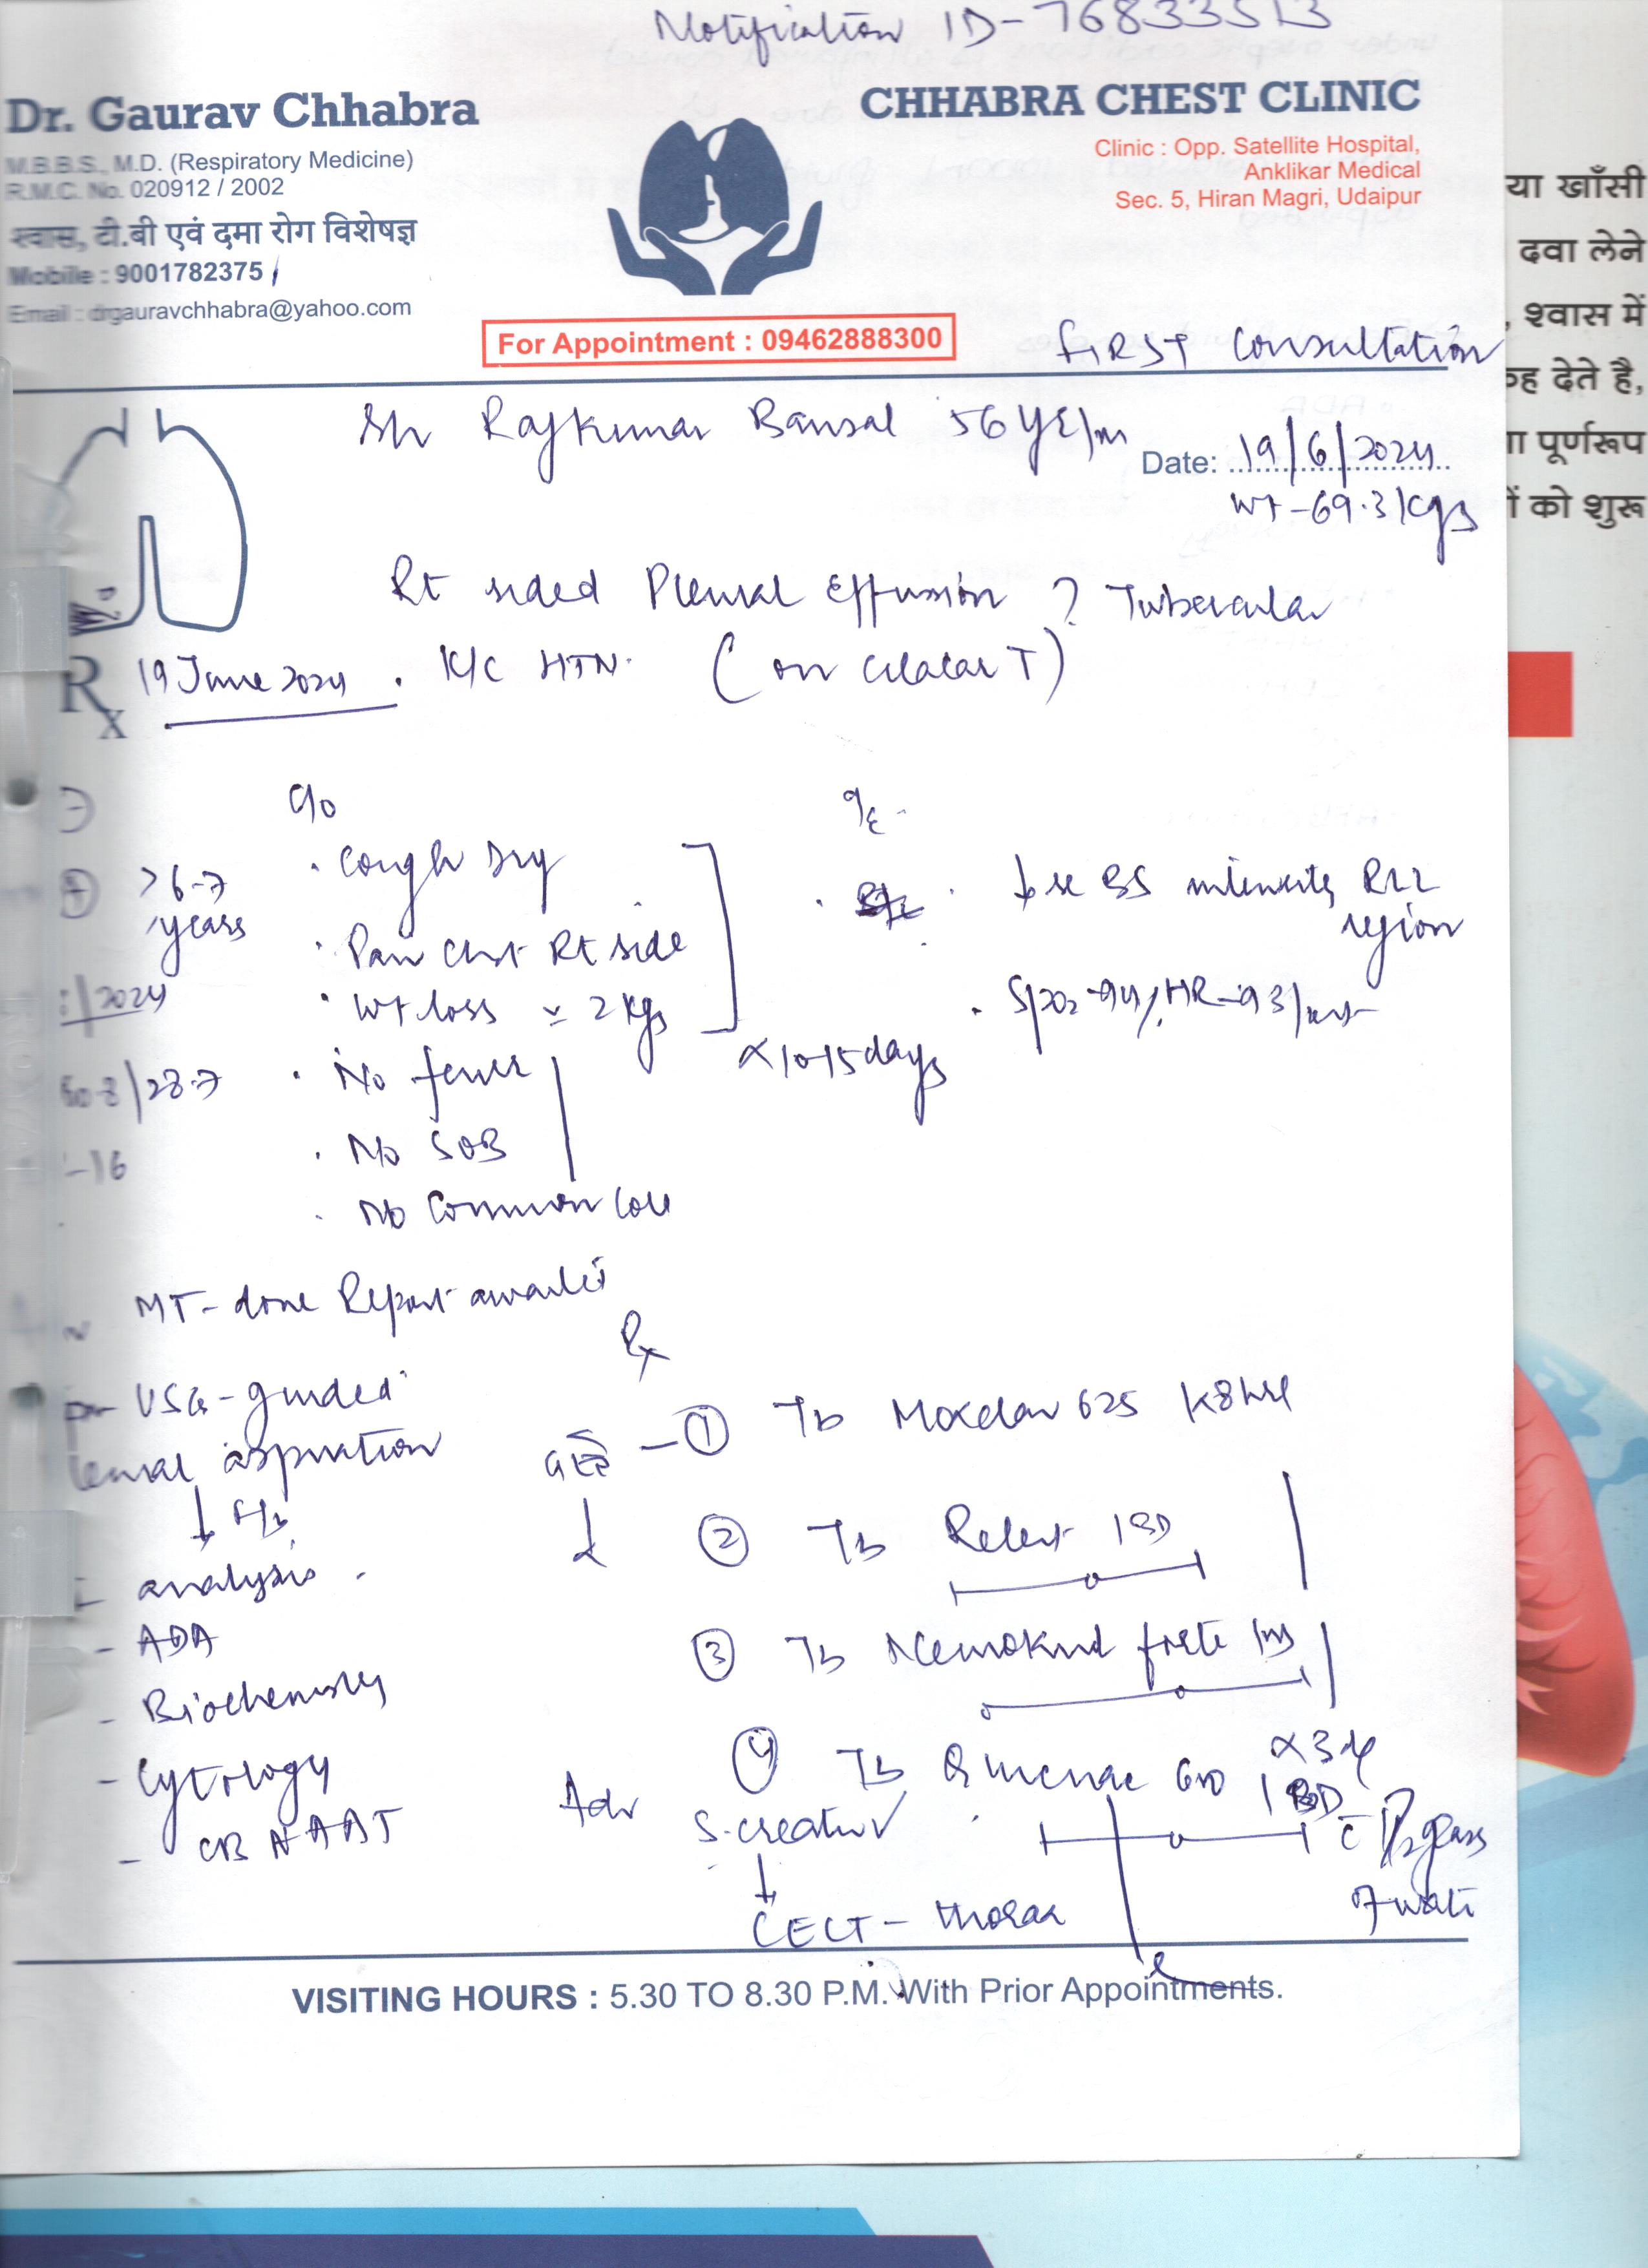 Notification ID-76833513
Dr. Gaurav Chhabra
M.B.B.S., M.D. (Respiratory Medicine)
R.M.C. No. 020912 / 2002
श्वास, टी.बी एवं दमा रोग विशेषज्ञ
Mobile : 9001782375
Email : drgauravchhabra@yahoo.com
CHHABRA CHEST CLINIC
Clinic : Opp. Satellite Hospital,
Anklikar Medical
Sec. 5, Hiran Magri, Udaipur
For Appointment : 09462888300
FIRST Consultation
Sh Rajkumar Bansal 56 yr/m
Date: 19/6/2024
Wt-69.3 kgs
Rt sided Pleural Effusion ? Tubercular
Rx 19 June 2024 . K/C HTN. (on Cilacar T)
C/o
. Cough Dry
. Pain Chest Rt side
. Wt loss ≃ 2 kgs
x 10-15 days
. No fever
. No SOB
. No Common Cold
O/E
. ↓se BS intensity RLL
region
. SpO2-94%, HR-93/mt
>6-7
years
/2024
/28.7
-16
MT- done Report awaited
USG-guided
aspiration
↓
analysis
- ADA
- Biochemistry
- Cytology
- CB NAAT
Rx
① Tb Moxclav 625 x 8 hrl
② Tb Relent 1 BD
③ Tb forte
④ Tb 600 1 BD
c 1/2 glass
of water
Adv
S. creatinine
↓
CECT - thorax
VISITING HOURS : 5.30 TO 8.30 P.M. With Prior Appointments.
या खाँसी
दवा लेने
, श्वास में
कह देते है,
पूर्णरूप
को शुरू